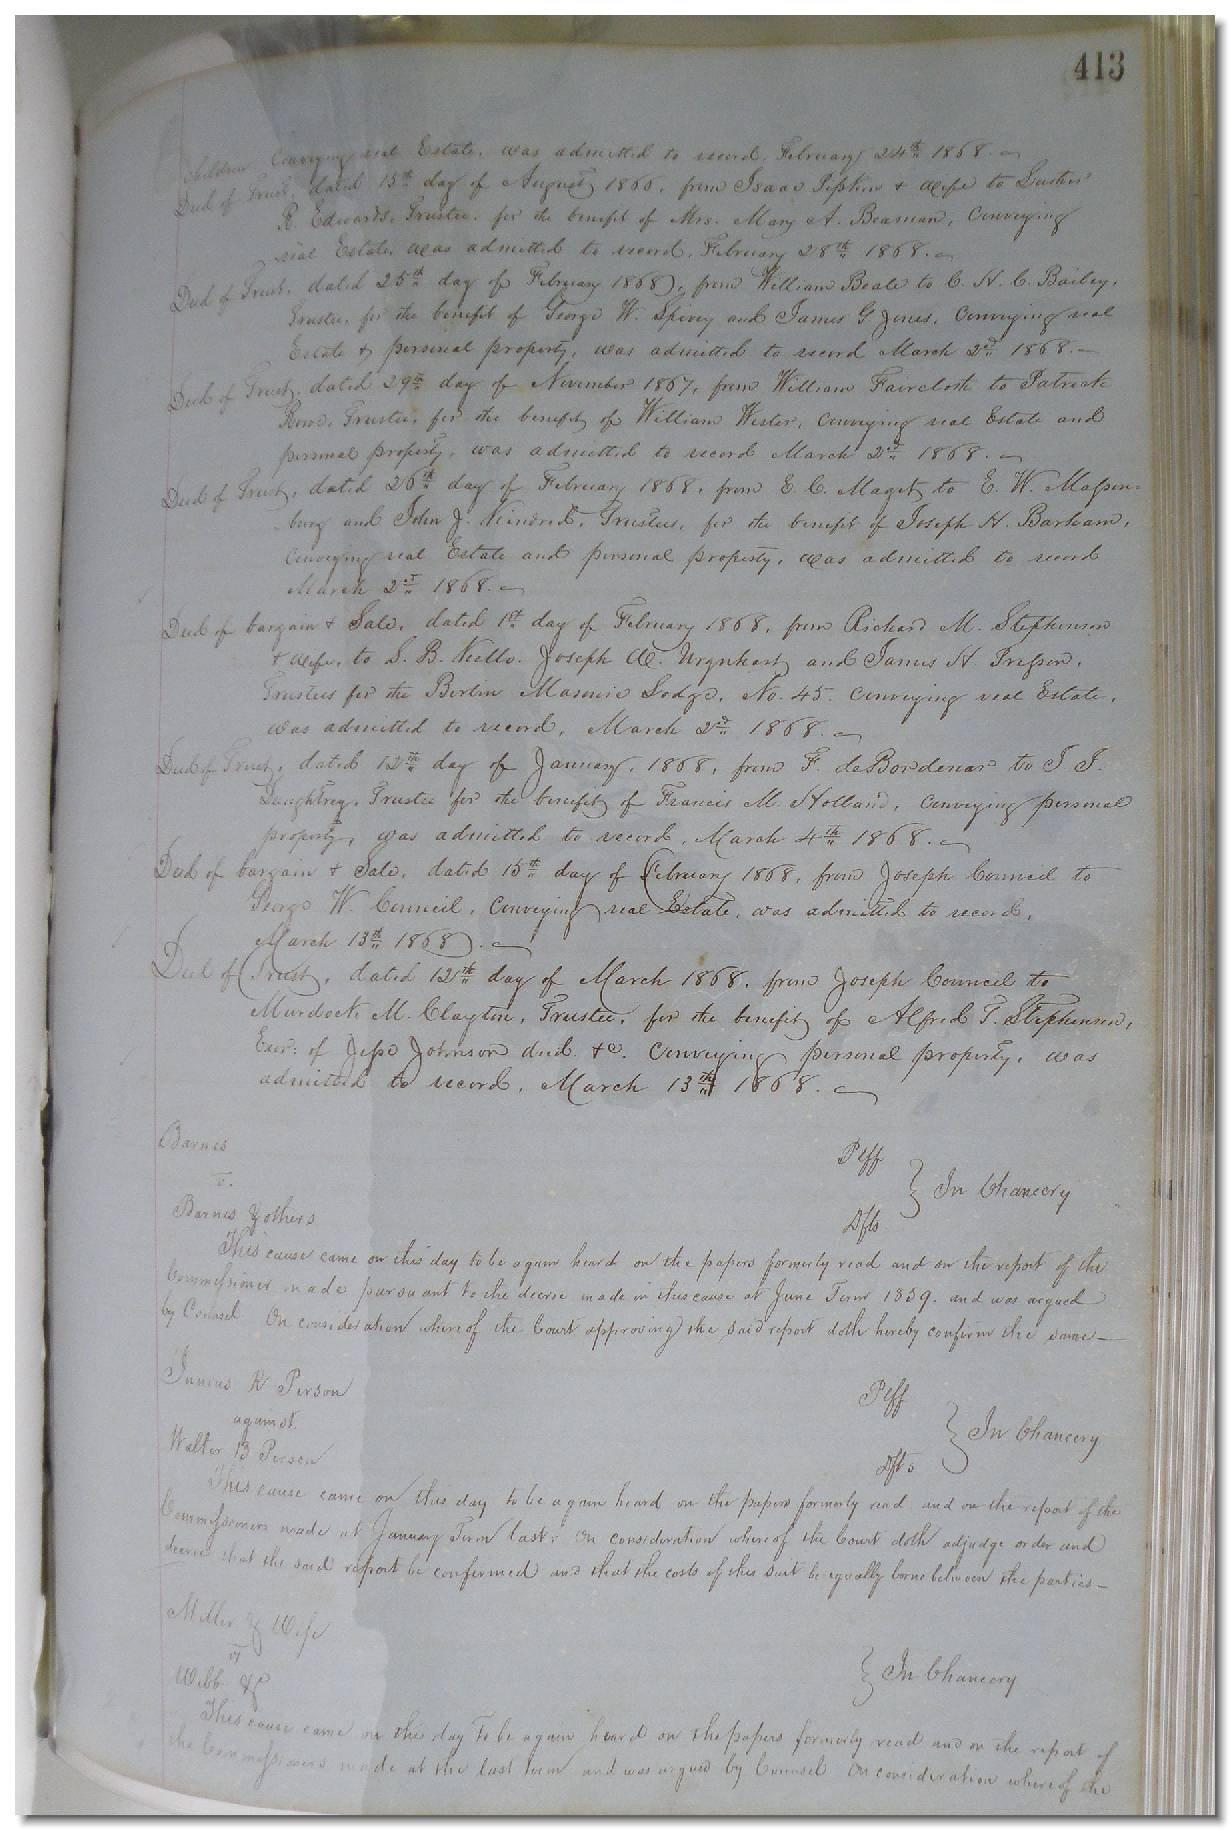 413
children conveying real Estate, was admitted to record, February 24th 1868.
Deed of Trust, dated 15th day of August 1866, from Isaac Pipkin & wife to
R. Edwards, Trustee, for the benefit of Mrs. Mary A. Beaman, conveying
real Estate, was admitted to record, February 28th 1868.
Deed of Trust, dated 25th day of February 1868, from William Beale to C. H. C. Bailey,
Trustee, for the benefit of George W. Spivey and James G Jones, conveying real
Estate & personal property, was admitted to record March 2d 1868.
Deed of Trust, dated 29th day of November 1867, from William Faircloth to Patrick
Trustee, for the benefit of William Wester, conveying real Estate and
personal property, was admitted to record March 2d 1868.
Deed of Trust, dated 26th day of February 1868, from E. C. Maget to E. W. Massen-
burg and John J. Kindred, Trustees, for the benefit of Joseph H. Barham,
conveying real Estate and personal property, was admitted to record
March 2d 1868.
Deed of bargain & Sale, dated 1st day of February 1868, from Richard M. Stephenson
& wife, to S. B. Kello, Joseph W. Urquhart and James H. Presson,
Trustees for the Berlin Masonic Lodge, No. 45 conveying real Estate,
was admitted to record, March 2d 1868.
Deed of Trust, dated 12th day of January, 1868, from F. deBordenar to J. J.
Daughtrey, Trustee for the benefit of Francis M. Holland, conveying personal
property, was admitted to record, March 4th 1868.
Deed of bargain & Sale, dated 15th day of February 1868, from Joseph Council to
George W. Council, conveying real Estate, was admitted to record,
March 13th 1868.
Deed of Trust, dated 12th day of March 1868, from Joseph Council to
Murdock M. Clayton, Trustee, for the benefit of Alfred T. Stephenson,
Exor: of Jesse Johnson decd. &c. conveying personal property, was
admitted to record, March 13th 1868.
Barnes Plff
v. In Chancery
Barnes & others Dfts
This cause came on this day to be again heard on the papers formerly read and on the report of the
Commissioner made pursuant to the decree made in this cause at June Term 1859. and was argued
by Counsel On consideration whereof the Court approving the said report doth hereby confirm the same—
Junius K Person Plff
against In Chancery
Walter B Person Dfts
This cause came on this day to be again heard on the papers formerly read and on the report of the
Commissioners made at January Term last: On consideration whereof the Court doth adjudge order and
decree that the said report be confirmed and that the costs of this suit be equally borne between the parties—
Miller & Wife
vs In Chancery
Webb &c
This cause came on this day to be again heard on the papers formerly read and on the report of
the Commissioners made at the last term and was argued by Counsel On consideration whereof the